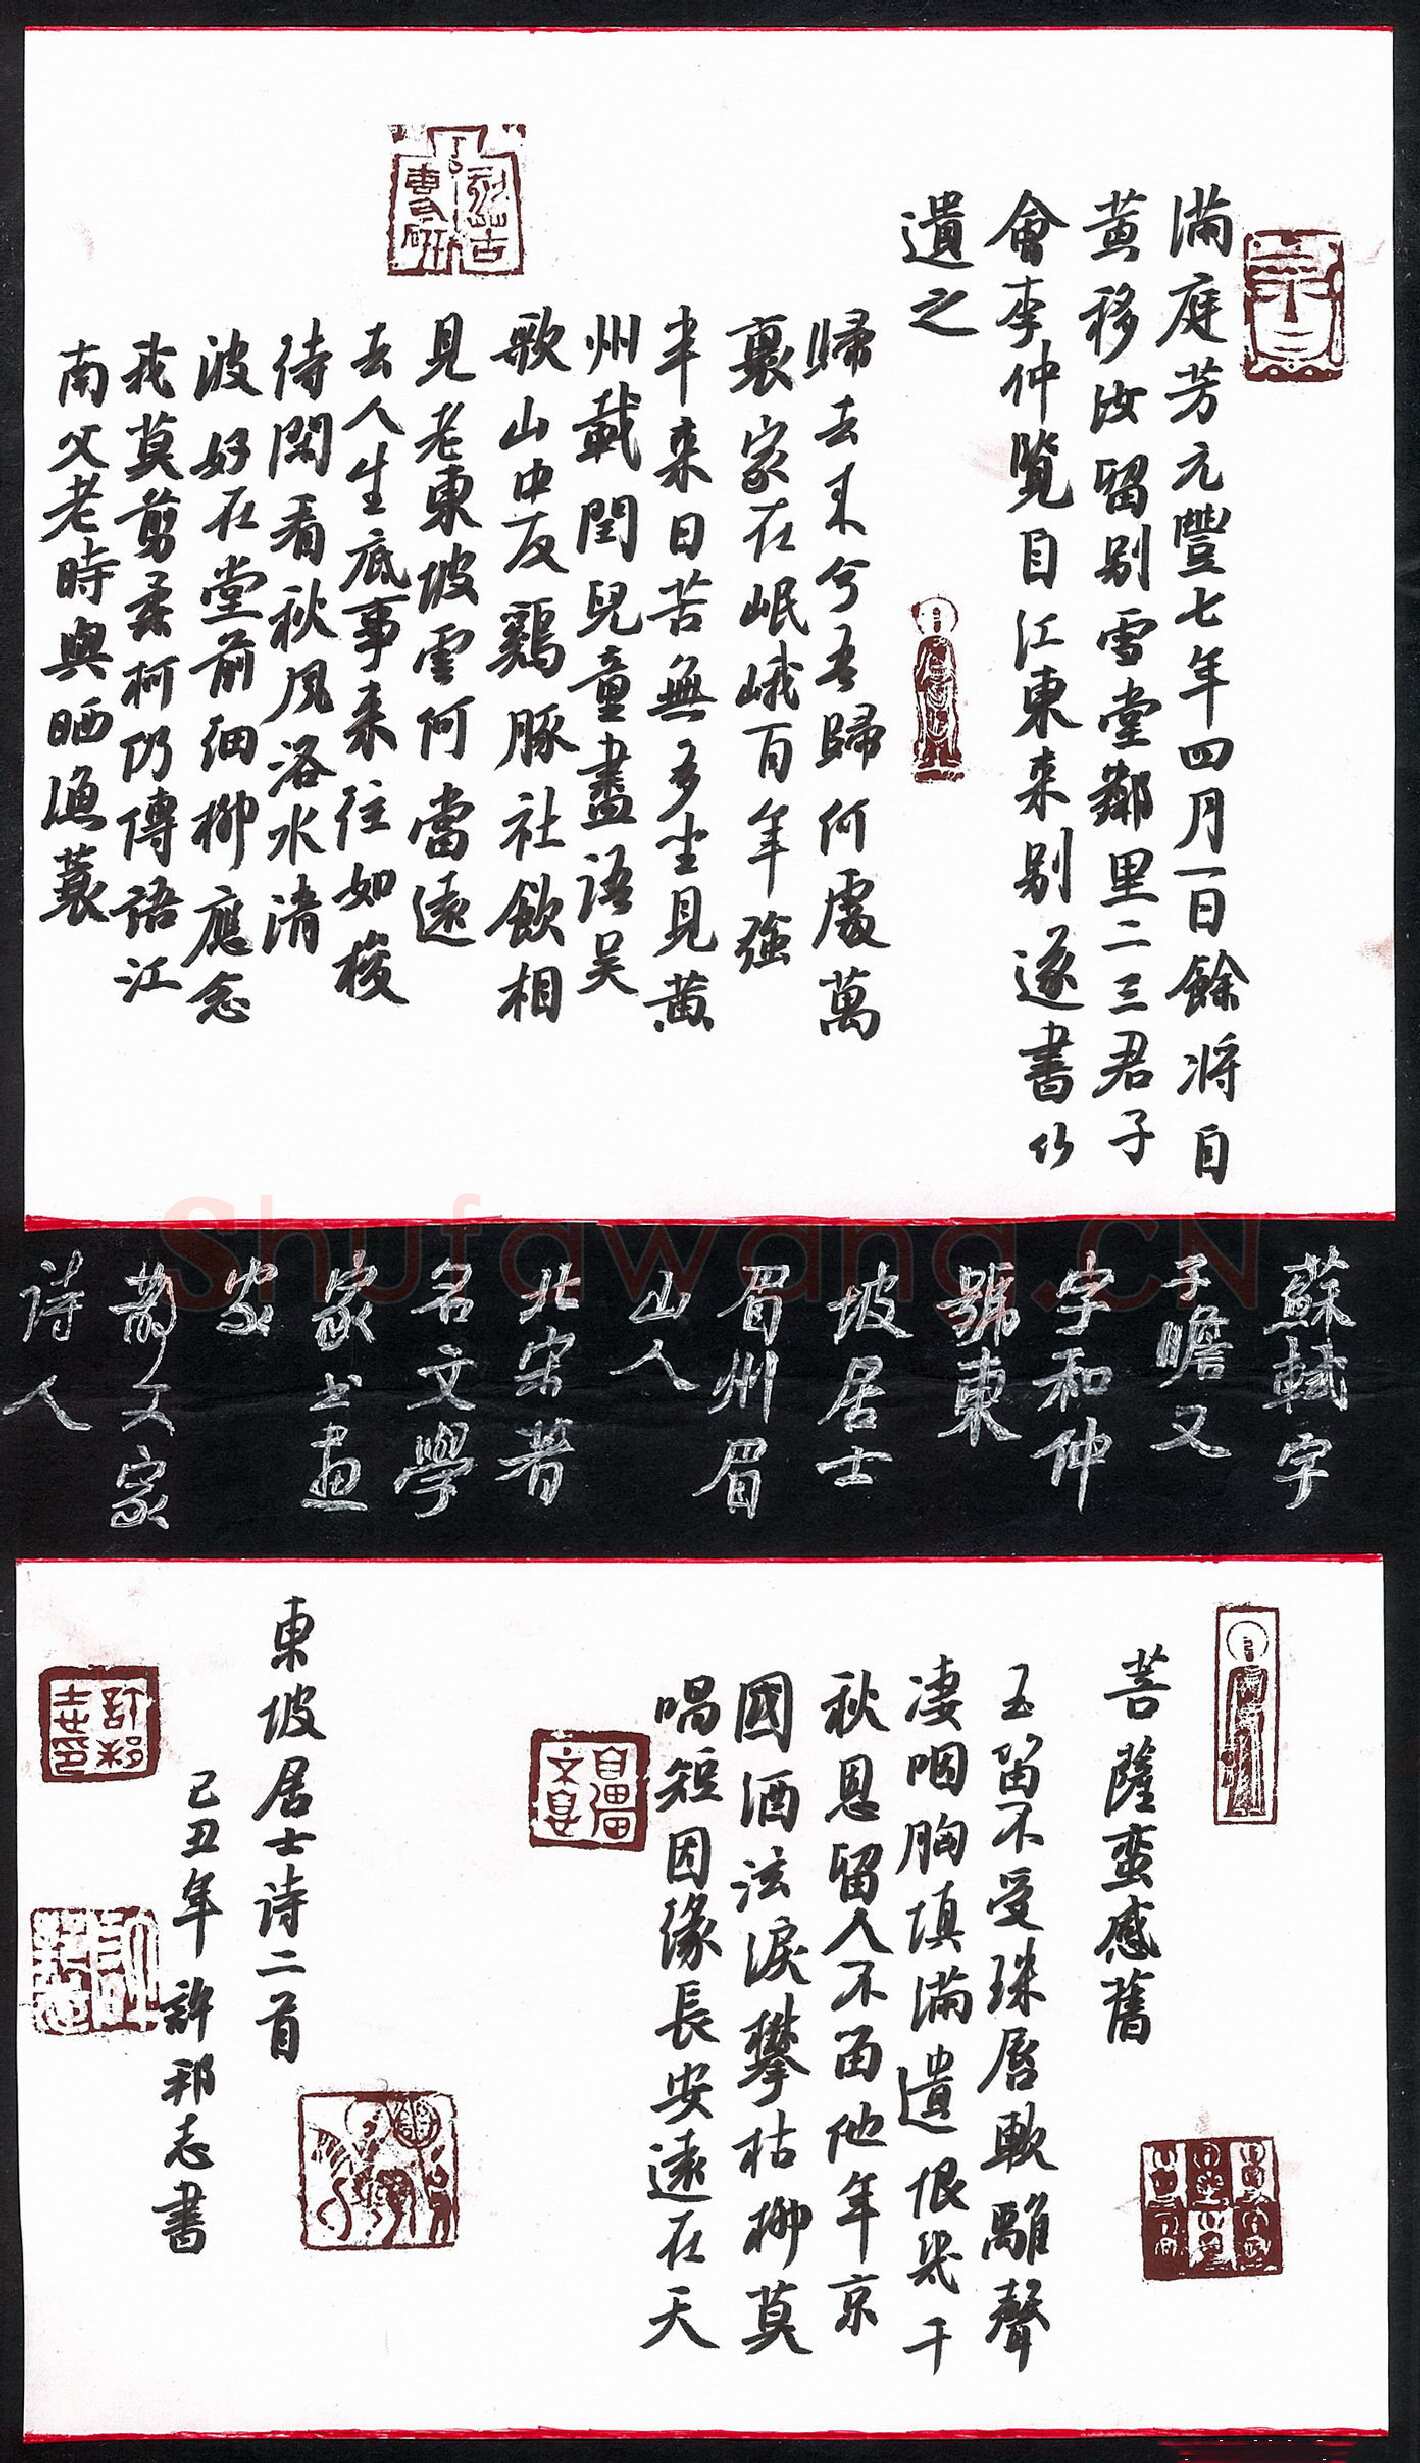 满庭芳元豐七年四月一日餘将自
黄移汝留别雪堂鄰里二三君子
會李仲覽自江東来别遂書以
遺之
歸去来兮吾歸何處萬
裏家在岷峨百年強
半来日苦無多坐見黄
州載閏兒童盡語吴
歌山中友鷄豚社飲相
見老東坡雲何當遠
去人生底事来往如梭
待閑看秋風洛水清
波好在堂前細柳應念
我莫剪柔柯仍傳語江
南父老時與晒漁蓑
蘇軾字
子瞻又
字和仲
號東
坡居士
眉州眉
山人
北宋著
名文學
家书畫
家
散文家
詩人
菩薩蛮感舊
玉笛不受珠唇軟離聲
凄咽胸填满遺恨幾千
秋恩留人不留他年京
國酒泫淚攀枯柳莫
唱短因缘長安遠在天
東坡居士詩二首
己丑年許邦志書
Shufawang.CN